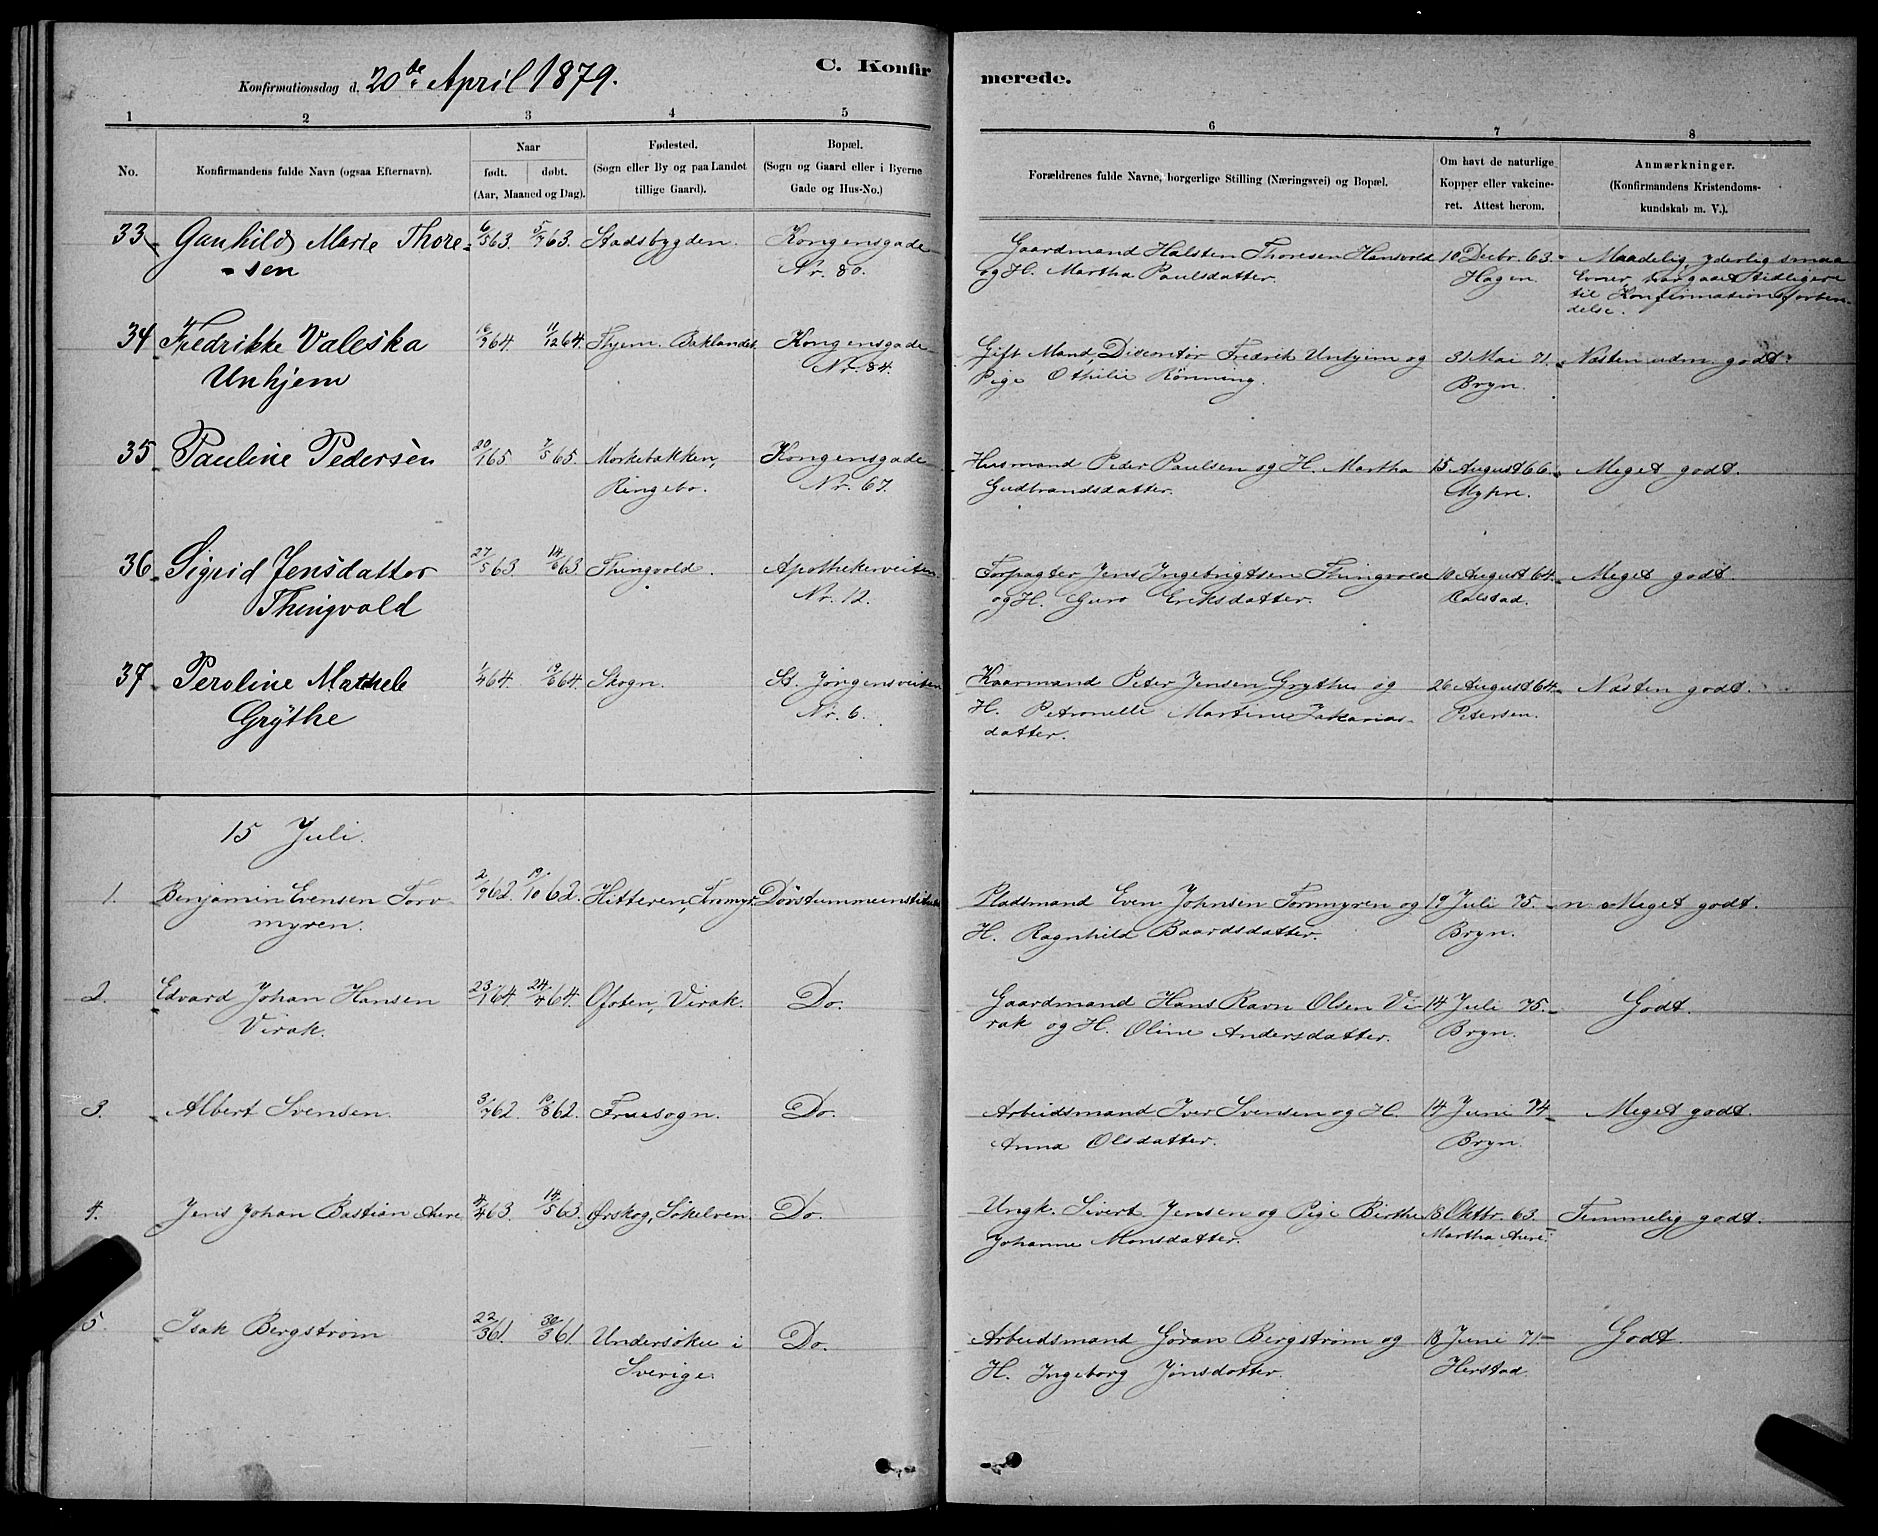 Konfirmationsdag d. 20de April 1879.
C. Konfir
merede.
1 2 3 4 5 6 7 8
No.
Konfirmandens fulde Navn (ogsaa Efternavn).
Naar
født. døbt.
(Aar, Maaned og Dag).
Fødested.
(Sogn eller By og paa Landet
tillige Gaard).
Bopæl.
(Sogn og Gaard eller i Byerne
Gade og Hus-No.)
Forældrenes fulde Navne, borgerlige Stilling (Næringsvei) og Bopæl.
Om havt de naturlige
Kopper eller vakcine-
ret. Attest herom.
Anmærkninger.
(Konfirmandens Kristendoms-
kundskab m. V.).
33 Gunhild Marie Thore- 6/5 63. 5/7 63. Stadsbygden. Kongensgade Gaardmand Halsten Thoresen Hansvold 10 Decbr. 63. Maadelig, yderlig smaa
-sen Nr. 80. og H. Martha Paulsdatter. Hagen. Evner, har gaaet tidligere
til Konfirmationsforbere-
delse.
34 Fredrikke Valeska 16/9 64. 11/12 64. Thjem. Baklandet Kongensgade Gift Mand, Discontør Fredrik Unhjem og 31 Mai 71. Næsten udm. godt.
Unhjem Nr. 84. Pige Othilie Rønning. Bryn.
35 Pauline Pedersen 20/1 65. 7/5 65. Morkebakken, Kongensgade Husmand Peder Paulsen og H. Martha 15 August 66. Meget godt.
Ringebo. Nr. 67. Gudbrandsdatter. Myhre.
36 Sigrid Jensdatter 27/5 63. 14/6 63. Thingvold. Apothekerveiten Forpagter Jens Ingebrigtsen Thingvold 10 August 64. Meget godt.
Thingvold Nr. 12. og H. Guro Eriksdatter. Calstad.
37 Peroline Mathele 1/4 64. 19/6 64. Skogn. St. Jörgensveiten Kaarmand Peter Jensen Grythe og 26 August 64. Næsten godt.
Grythe Nr. 6. H. Petronelle Martine Zakarias- Petersen.
datter.
15 Juli.
1. Benjamin Evensen Torv- 2/9 62. 19/10 62. Hitteren, Tormyr. Døvstummeinstitutet Pladsmand Even Johnsen Tormyren og 19 Juli 75. n. Meget godt.
myren. H. Ragnhild Baardsdatter. Bryn.
2. Edvard Johan Hansen 23/1 64. 24/4 64. Ofoten, Virak. Do. Gaardmand Hans Ravn Olsen Vi- 14 Juli 75. Godt.
Virak. rak og H. Oline Andersdatter. Bryn.
3. Albert Svensen. 3/7 62. 10/8 62. Fruesogn. Do. Arbeidsmand Iver Svensen og H. 14 Juni 74 Meget godt.
Anna Olsdatter. Bryn.
4. Jens Johan Bastian Aure 4/4 63. 14/5 63. Ørskog, Søkelven. Do. Ungk. Sivert Jensen og Pige Birthe 18 Oktbr. 63. Temmelig godt.
Johanne Monsdatter. Martha Aure.
5. Isak Bergstrøm 22/3 61. 30/3 61. Undersøke i Do. Arbeidsmand Gøran Bergstrøm og 18 Juni 71 Godt.
Sverige. H. Ingeborg Jönsdotter. Herstad